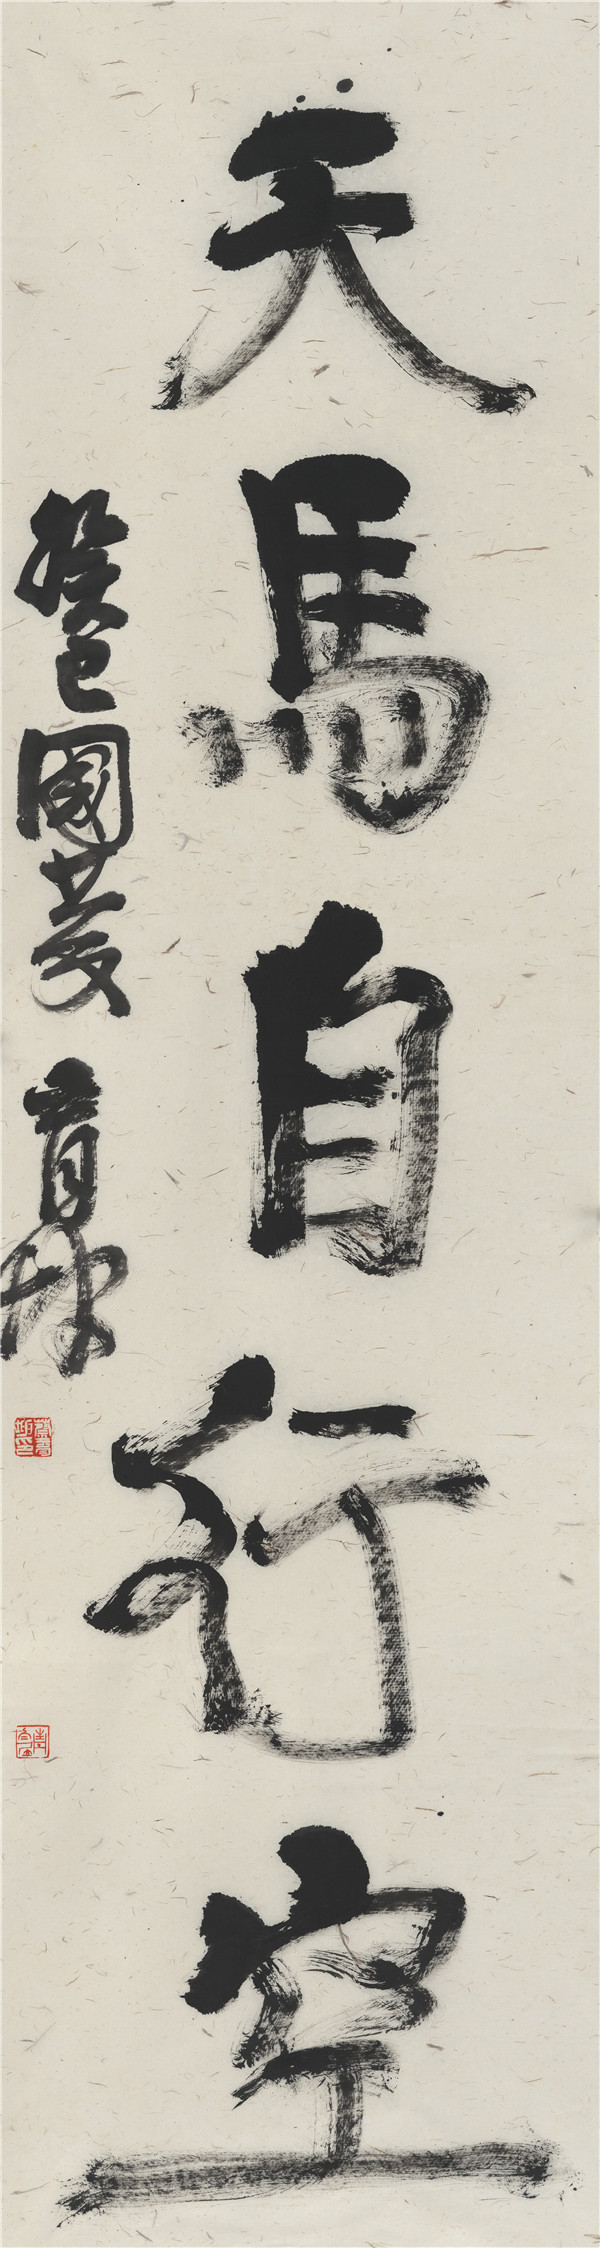 天馬自行空
癸巳國慶 育坤